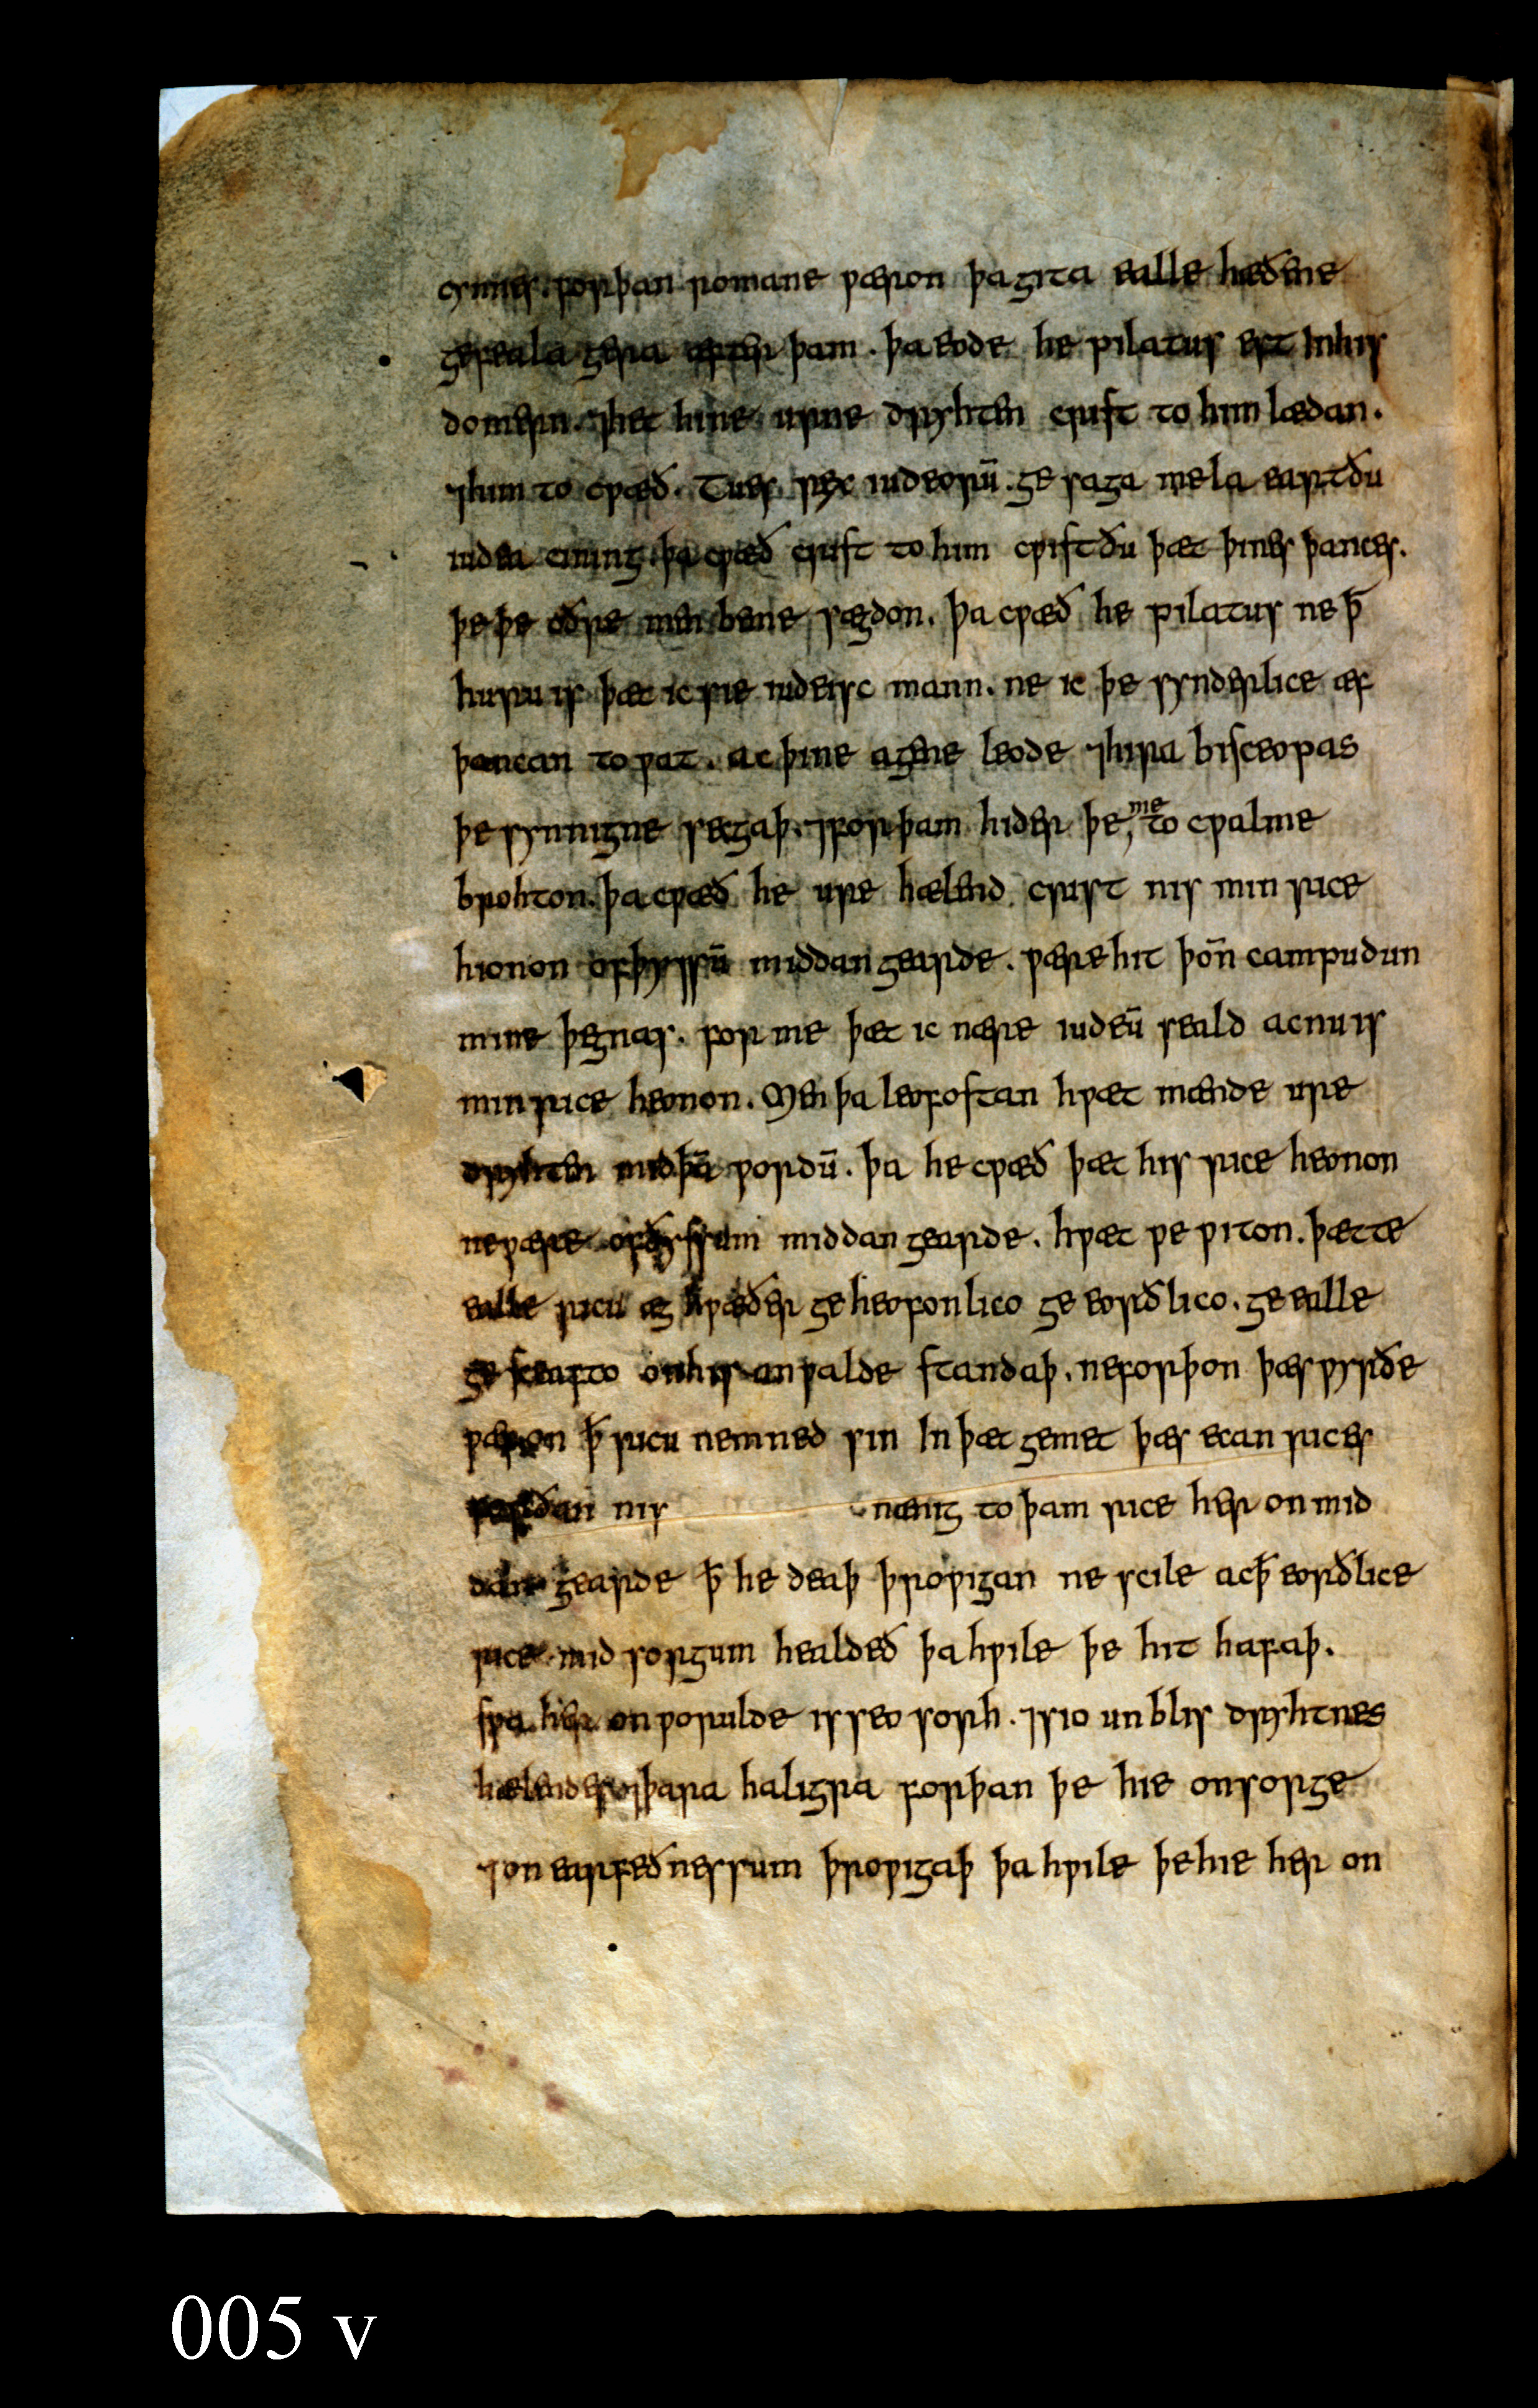 ymnes. forþan romane wæron þagita ealle hæðene
gefeala gera æfter þam. þaeode he pilatus eft Inhis
domern. ⁊het hine urne dryhten crist to him lædan.
⁊him to cwæð. Tues rex iudeorū. ge saga me la eartðu
iudea cining. þa cwæð crist to him cwistðu þæt þines þances.
þe þe oðre men bene sægdon. þa cwæð he pilatus ne ꝥ
huru is þæt ic sie iudeisc mann. ne ic þe synderlice æf
þancan towat. ac þine agene leode ⁊hira bisceopas
þe synnigne secgaþ. ⁊forþam hider þe, me to cwalme
brohton. þa cwæð he ure hælend crist nis min rice
hionon ofþyssū middangearde. wærehit þoñ campudun
mine þegnas. for me þæt ic nære iudeū seald ac nu is
min rice heonon. Men þa leofostan hwæt mænde ure
dryhten mid þā wordū. þa he cwæð þæt his rice heonon
ne wære ofðyssum middangearde. hwæt we witon. þætte
ealle ricu æg hwæðer ge heofonlico ge eorðlico. ge ealle
ge sceafto onhis anwalde standaþ. neforþon þæs wyrðe
wæron ꝥ ricu nemned sin In þæt gemet þæs ecan rices
nis nænig to þam rice her on mid
dan gearde ꝥ he deaþ þrowigan ne scile acꝥ eorðlice
rice mid sorgum healdeð þa hwile þe hit hafaþ.
swa her on worulde is seo sorh. ⁊sio unblis dryhtnes
hælendes ⁊þara haligra forþan þe hie onsorge
⁊on earfeðnessum þrowigaþ þa hwile þe hie her on
005 v